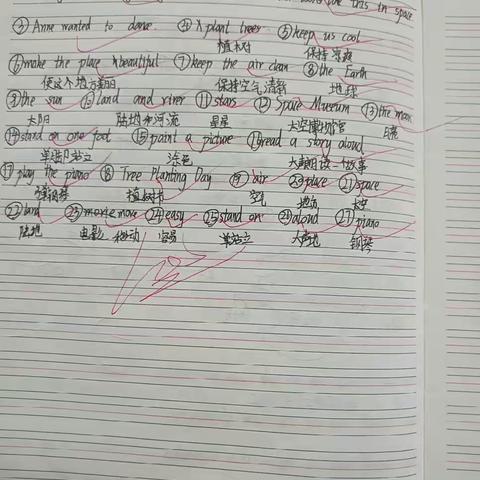 this in space
③ Anne wanted to dance. ④ plant trees ⑤ keep us cool
植树 保持凉爽
⑥ make the place beautiful ⑦ keep the air clean ⑧ the Earth
使这个地方美丽 保持空气清新 地球
⑨ the sun ⑩ land and river ⑪ stars ⑫ Space Museum ⑬ the moon
太阳 陆地和河流 星星 太空博物馆 月亮
⑭ stand on one foot ⑮ paint a picture ⑯ read a story aloud
单脚站立 涂色 大声朗读一个故事
⑰ play the piano ⑱ Tree Planting Day ⑲ air ⑳ place ㉑ space
弹钢琴 植树节 空气 地方 太空
㉒ land ㉓ movie move ㉔ easy ㉕ stand on ㉖ aloud ㉗ piano
陆地 电影 移动 容易 单站立 大声地 钢琴